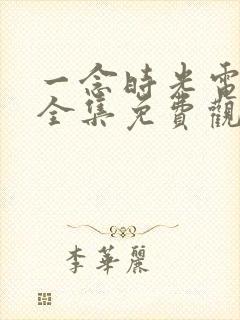 一念時光電
全集免費觀
李華麗